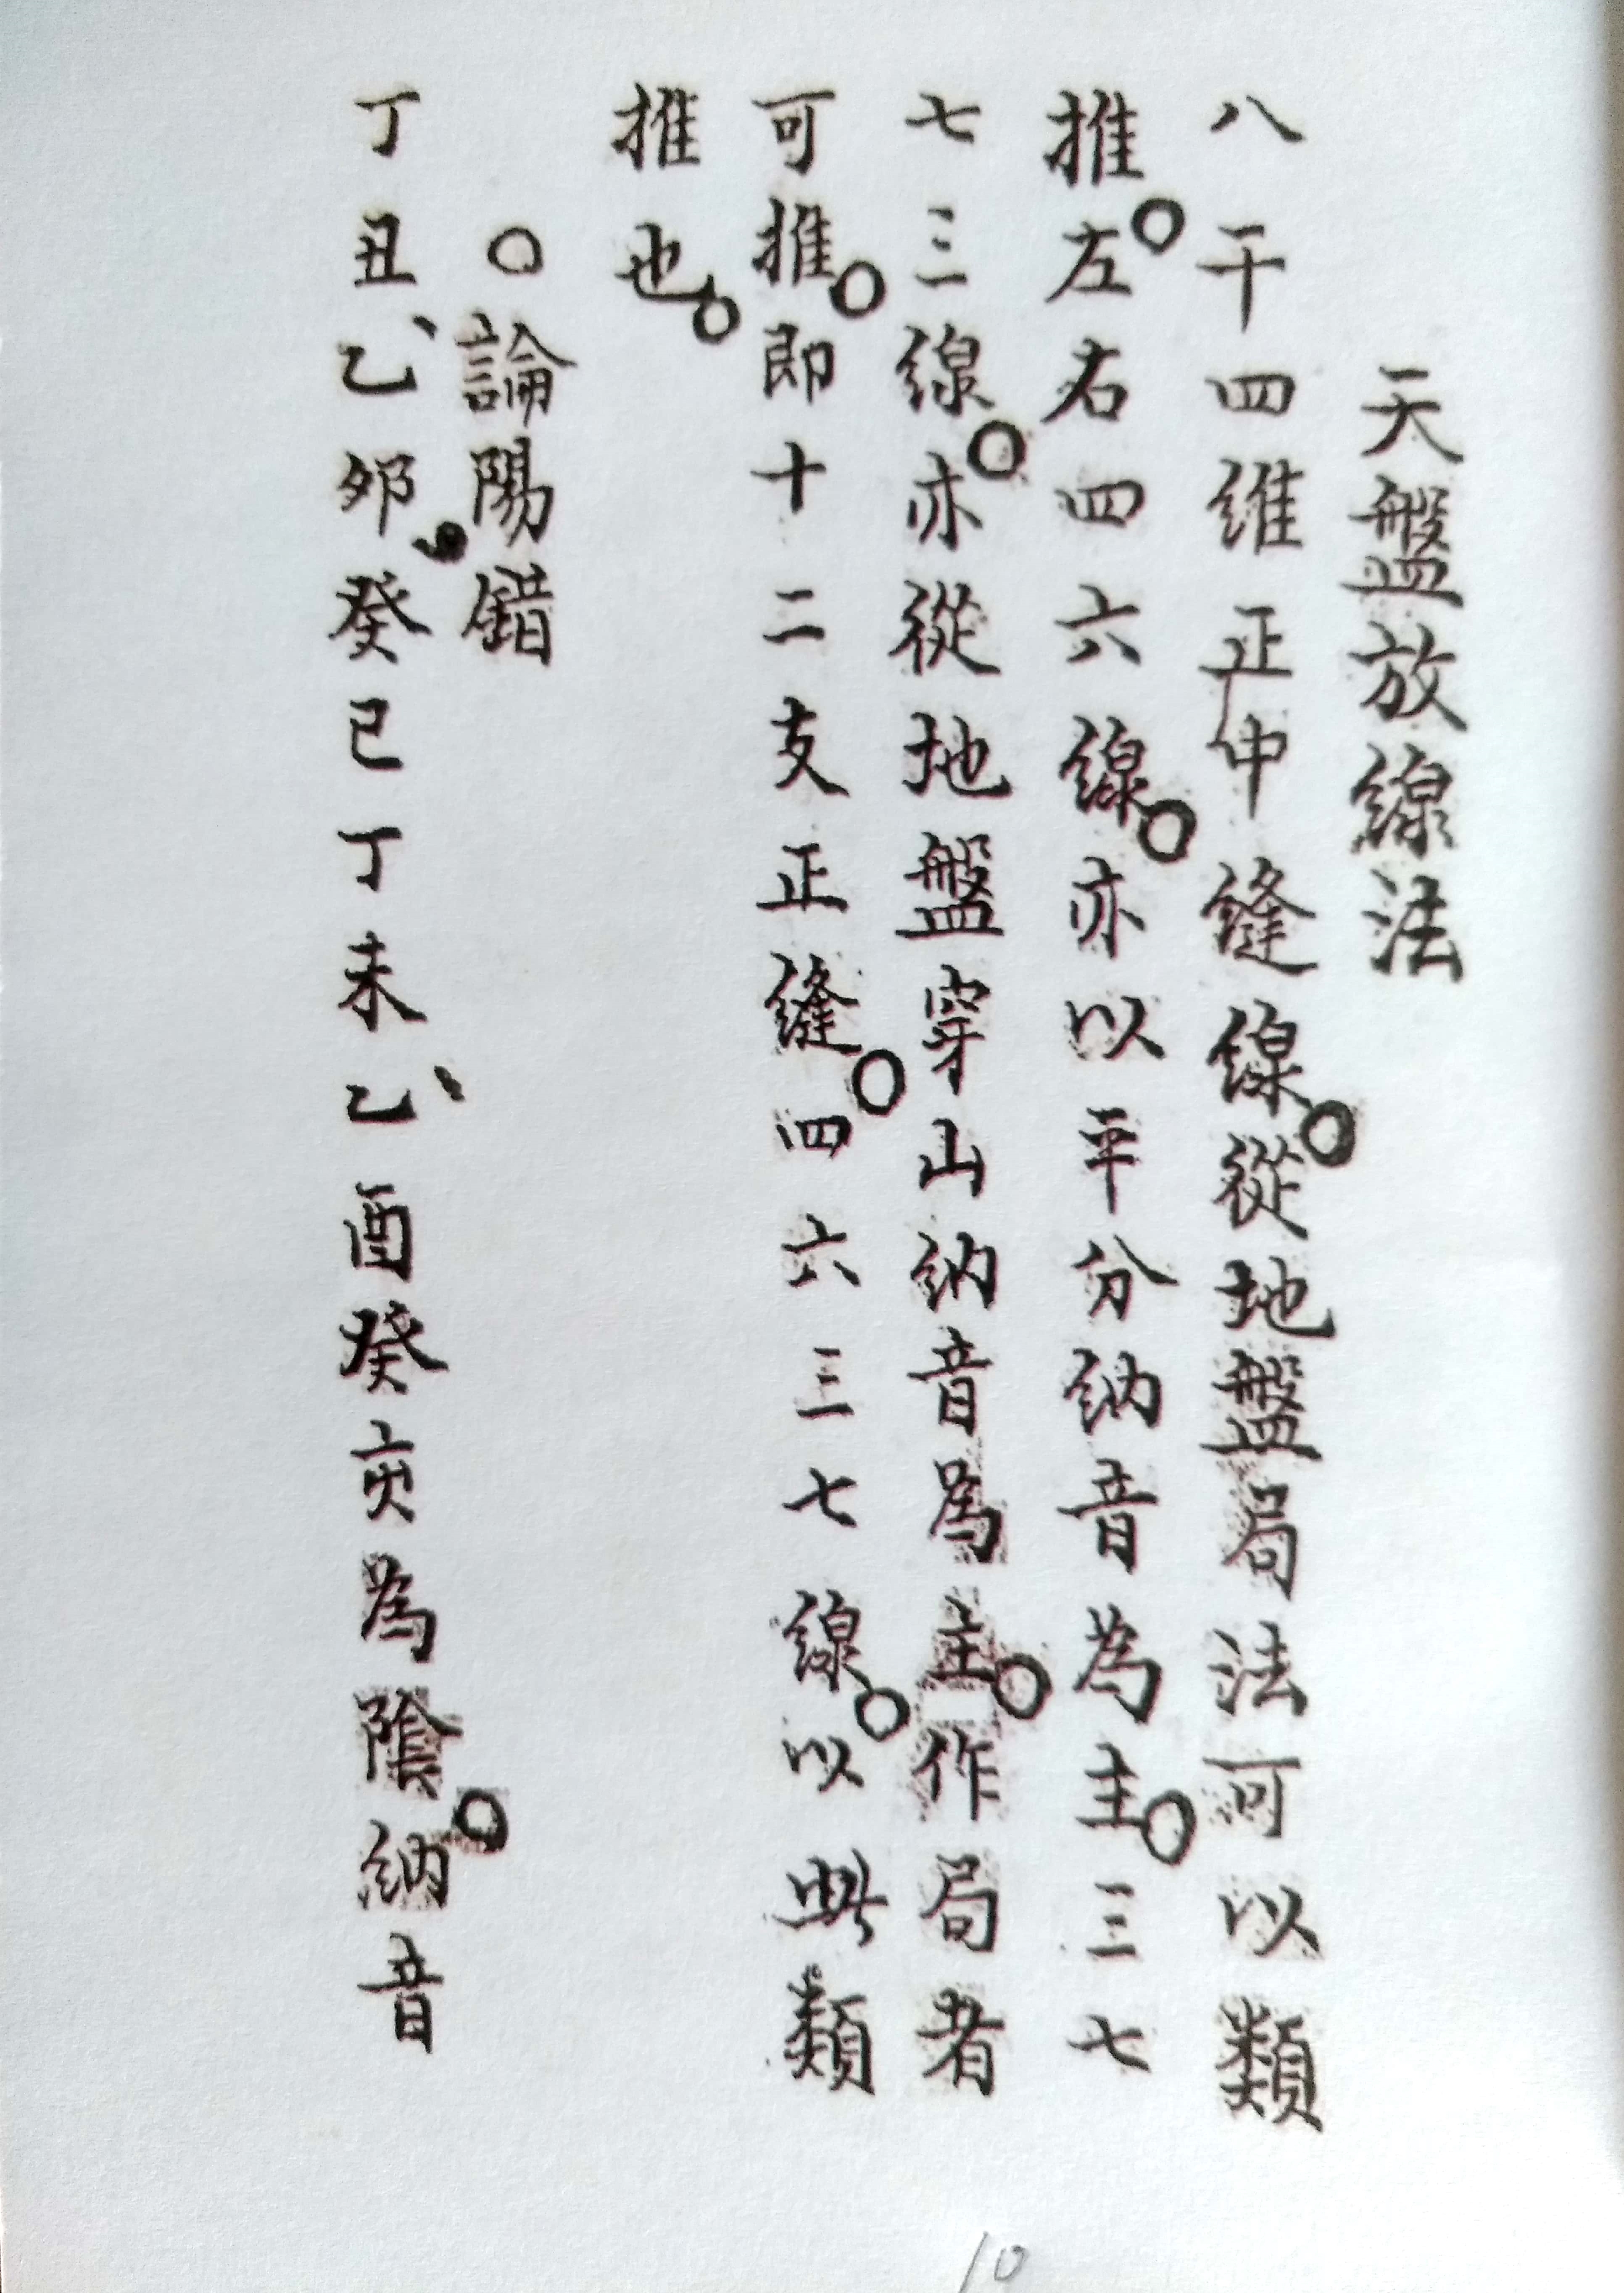 天盤放線法
八干四維正中縫線。從地盤局法可以類
推。左右四六線。亦以平分納音為主。三七
七三線。亦從地盤穿山納音為主。作局者
可推。即十二支正縫。四六三七線。以此類
推也。
○論陽錯
丁丑、乙卯。癸巳丁未乙、酉癸亥為陰。納音
10